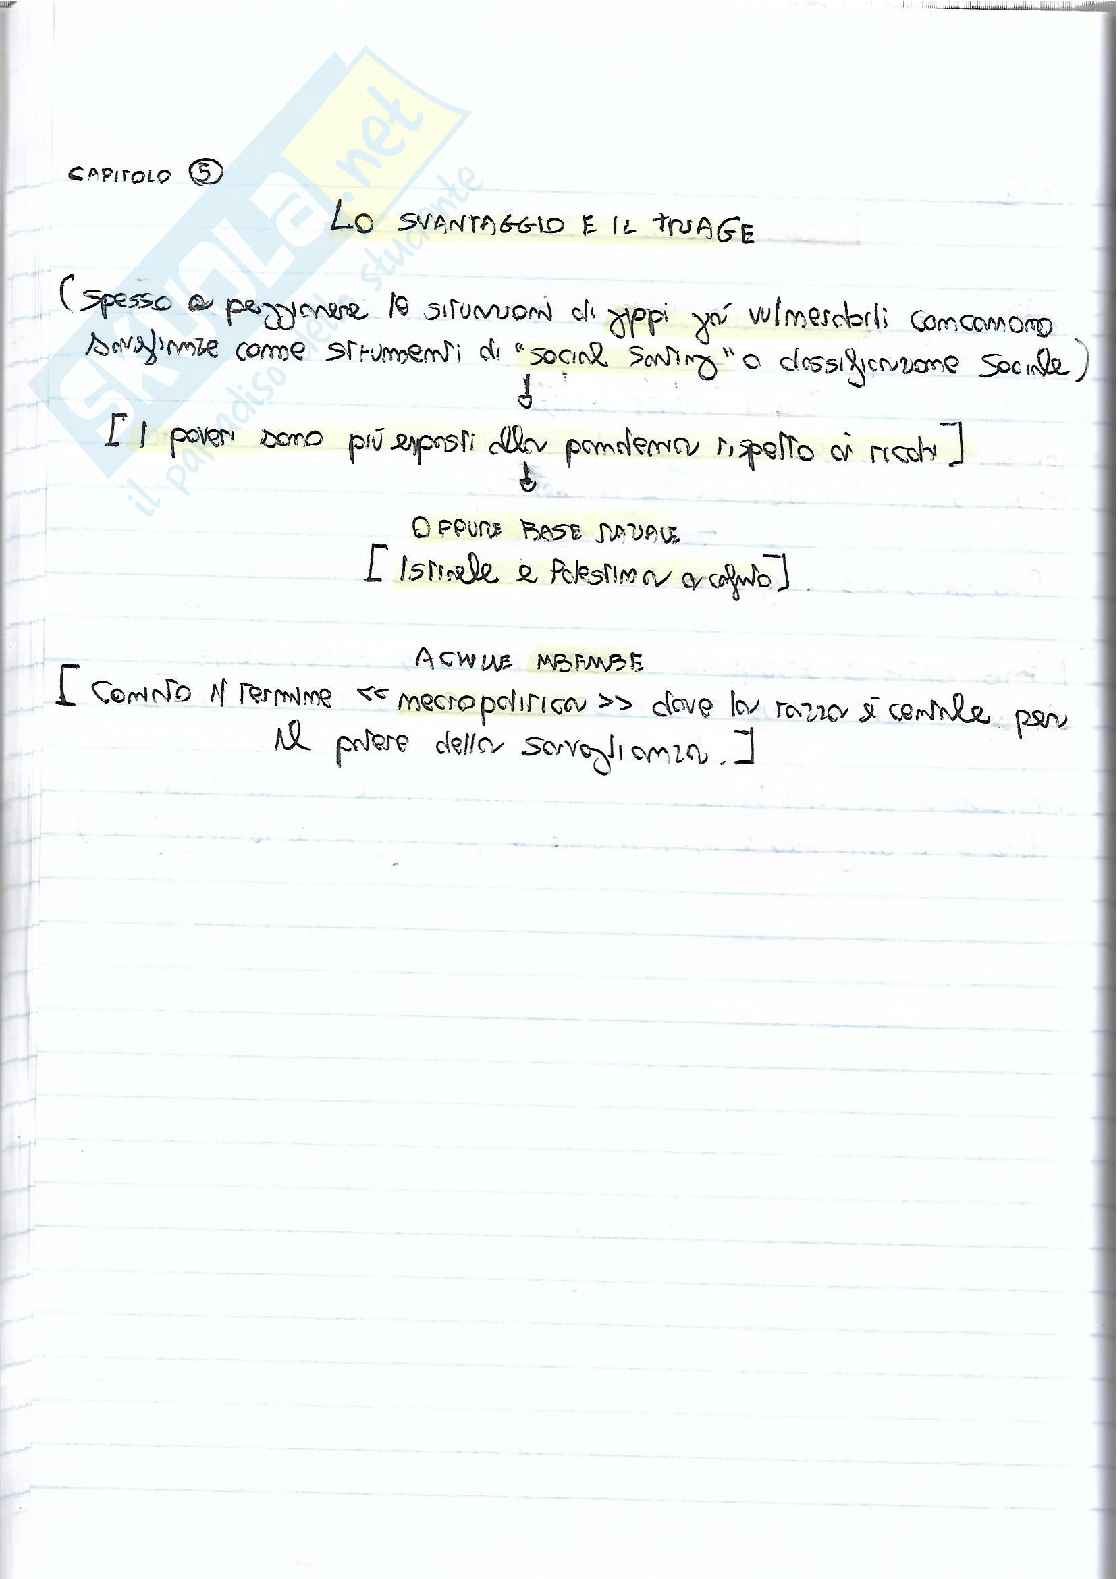 SKUOLA.net
il paradiso dello studente
CAPITOLO 5
LO SVANTAGGIO E IL TRIAGE
(Spesso a peggiorare le situazioni di gruppi già vulnerabili concorrono
sorveglianze come strumenti di "social sorting" o classificazione sociale)
[I poveri sono più esposti alla pandemia rispetto ai ricchi]
OPPURE BASE
[Israele e Palestina a confronto]
ACHILLE MBEMBE
[Coniato il termine <<necropolitica>> dove la razza è centrale per
il potere della sorveglianza.]